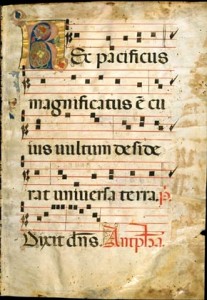 Rex pacificus
magnificatus ē cu
ius vultum deside
rat universa terra. p̄.
Dixit dn̄s. Antpha